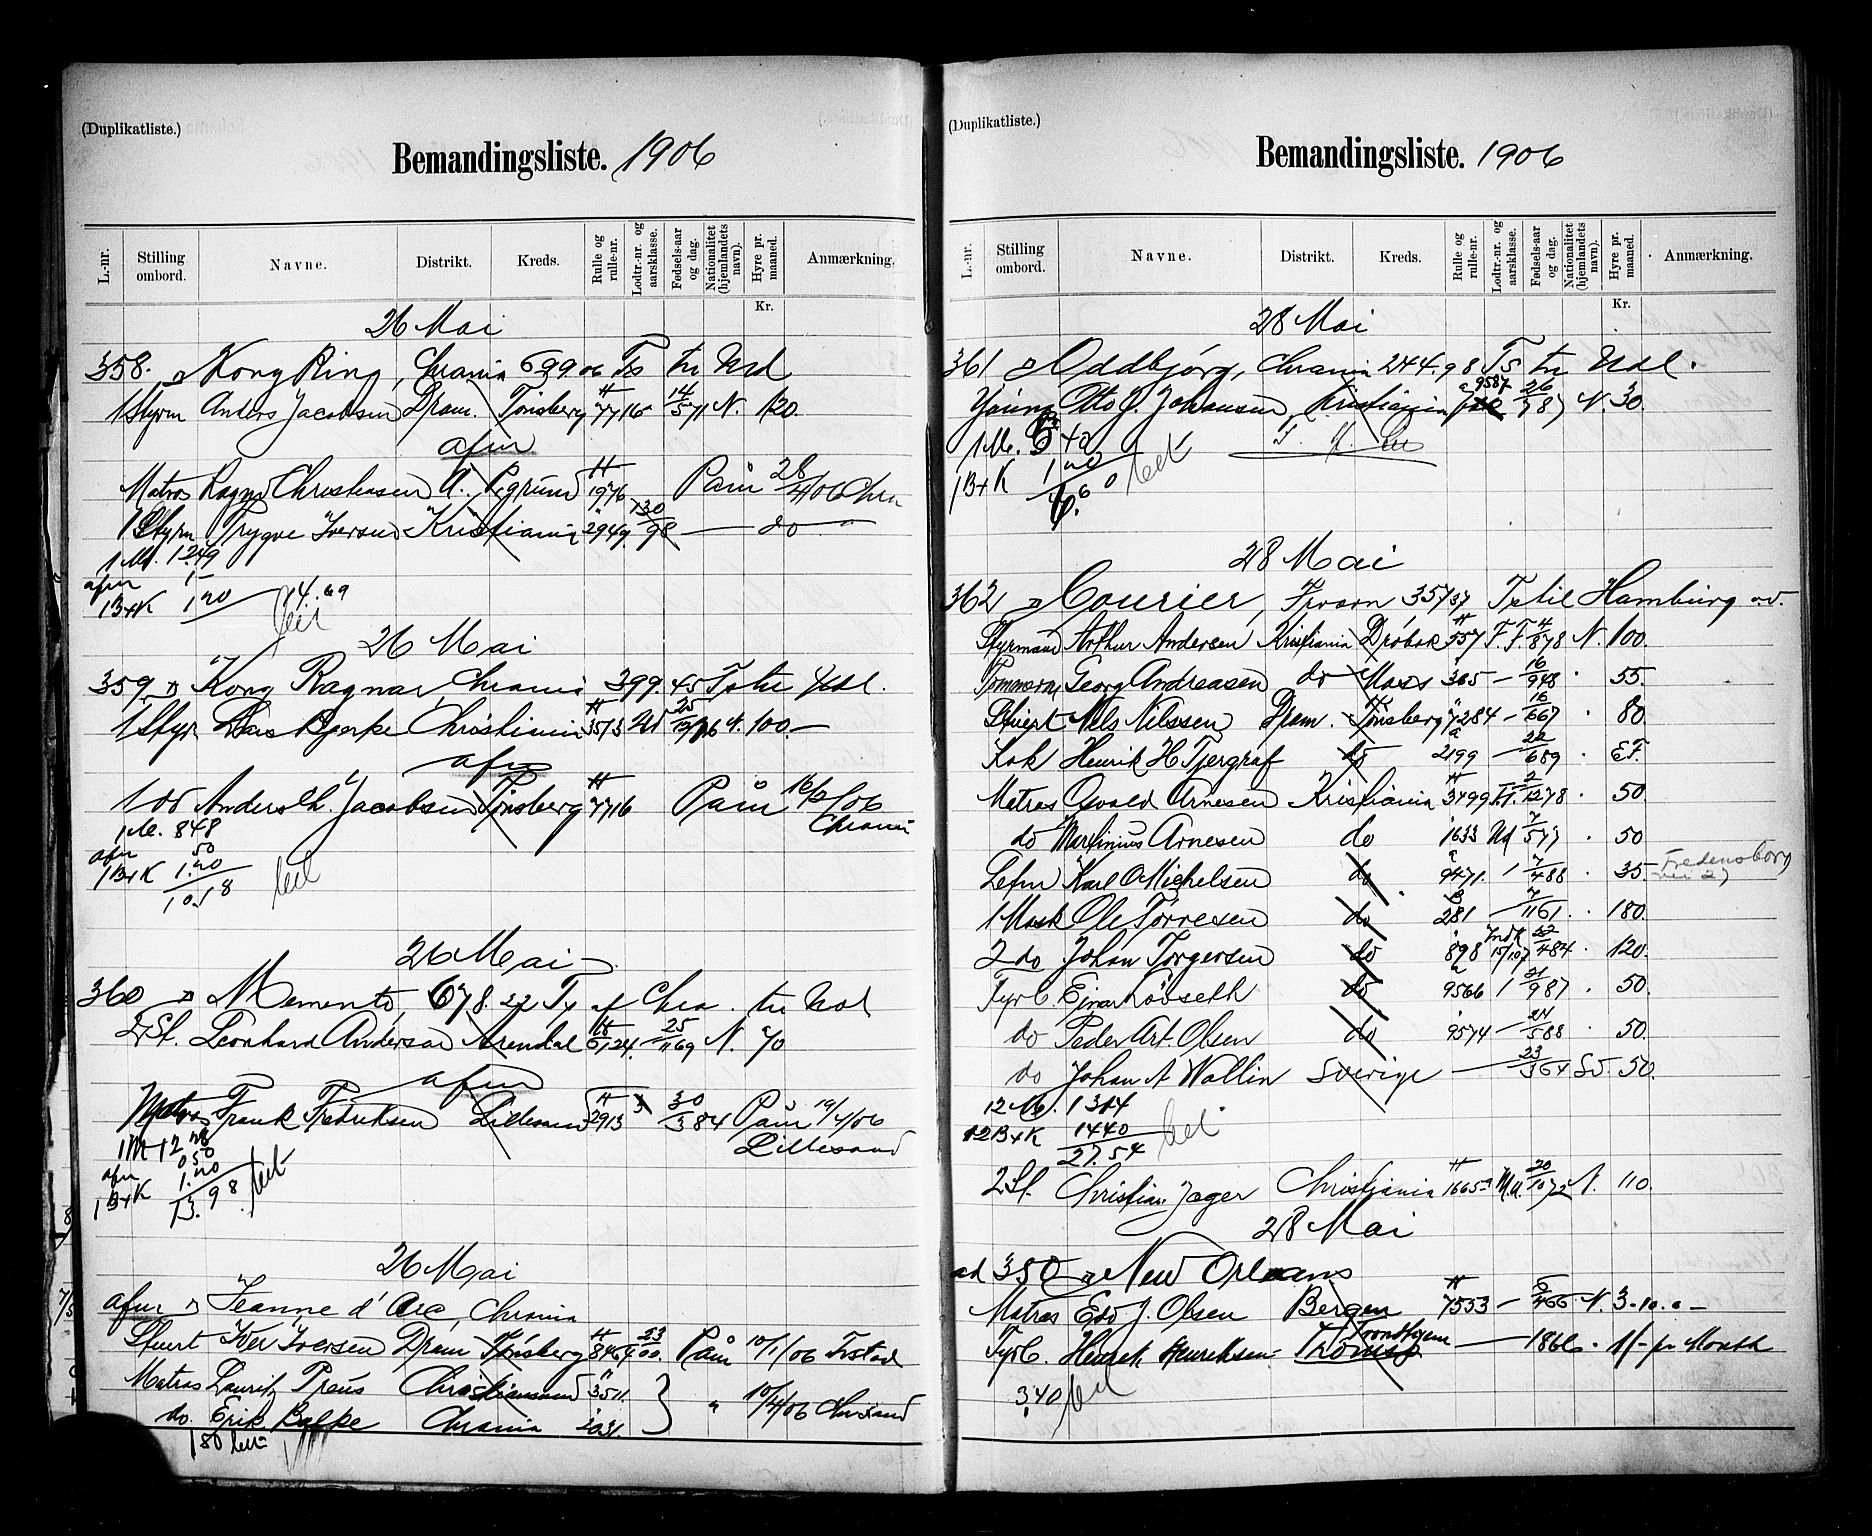 (Duplikatliste.)
Bemandingsliste. 1906
L.-nr. Stilling ombord. Navne. Distrikt. Kreds. Rulle og rulle-nr. Lodtr.-nr. og aarsklasse. Fødsels-aar og dag. Nationalitet (hjemlandets navn). Hyre pr. maaned. Anmærkning.
Kr.
26 Mai
358. Kong Ring, Chrania 699 06 Ts til Udl
1 Styrm Anders Jacobsen Dram. Tönsberg 7716 14/5 71 N. 120
afm
Matros Ragnv Christensen Pegrund 1976 Paam 28/4 06 Chra
1 Styrm Trygve Iversen Kristiania 2949 130/98 — do —
1 M. 12.49
afm 1-
1 B+K 1.20 14.69
26 Mai
359 Kong Ragnar, Chrania 399.45 Ts til Udl.
1 Styr Bjerke Christiania 3573 Ud 25 N. 100.—
afm
1 do Anders Ch. Jacobsen Tönsberg 7716 Paam /06
Chrania
1 M. 848
afm 50
1 B+K 1.20
10.18
26 Mai
360 Memento, 678.22 Ts af Chra. til Udl
2 St. Leonhard Anderson Arendal 6124. 25/11 69 N. 70
afm
Matros Frank Fredriksen Lillesand 2913 3 30/3 84 Paam 19/4/06
Lillesand
1 M 12.28
afm 0.50
1 B+K 1.20
13.98
26 Mai
afm Jeanne d'Arc, Chrania
Stuert Iver Iversen Dram Tönsberg 846 23 00. Paam 10/1/06 Frstad
Matros Lauritz Preus Christiansand 3511. " 10/4/06 Chrsand
do. Erik Bakke Chrania 2031.
180
(Duplikatliste.)
Bemandingsliste. 1906
L.-nr. Stilling ombord. Navne. Distrikt. Kreds. Rulle og rulle-nr. Lodtr.-nr. og aarsklasse. Fødsels-aar og dag. Nationalitet (hjemlandets navn). Hyre pr. maaned. Anmærkning.
Kr.
28 Mai
361 Oddbjörg, Chrania 244.98 Ts til Udl.
Otto J. Johansen, Kristiania 9587 26/7 87 N. 30.
1 M. 5 40
1 B+K 1 20
6. 6 0
28 Mai
362 Courier, Fra 357/37 Ts til Hamburg
Styrmand Arthur Andersen Kristiania Dröbak 557 F.F. 4/8 78 N. 100.
Tömmerm Georg Andreasen do Moss 365 — 16/9 48 . 55.
Stuert Nils Nilssen Dram. Tönsberg 7284 — 16/6 67 . 80
Kok Henrik H Tjergraf do 2199 — 22/6 89 . EF.
Matros Osvald Arnesen Kristiania 3499 F.F. 2/12 78 . 50
do Martinius Arnesen do 1633 Ud 7/5 77 . 50
Letm Karl O Michelsen do 9471. 1 7/4 88 . 35. Fredensborg 27
1 Mask Ole Törresen do 281 — 7/11 61 . 180.
2 do Johan Torgersen do 898 Indk 15/10 22/4 84 . 120
Fyrb. Ejnar Lövseth do 9566 1 31/9 87 . 50
do Peder Art. Olsen do 9574 — 24/5 88 . 50.
do Johan A Wallin Sverige — 23/3 64 Sv. 50.
12 M. 1314
12 B+K 1440
27.54
2 St. Christian Jager Christiania 1665 20/10 72 N. 110.
28 Mai
ad 350 New Orleans
Matros Edv J. Olsen Bergen 7533 — 5/4 66 N. 3-10.0—
Fyrb. Henrik Henriksen Trondhjem Tromsö — 1866. 4/- pr Month
340